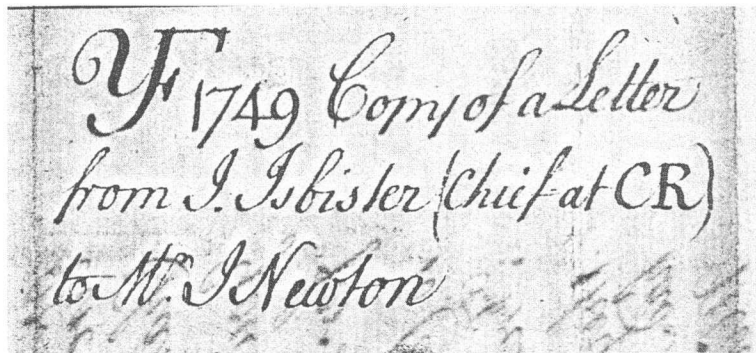 YF 1749 Copy of a Letter
from J. Isbister (Chief at CR)
to Mr. J Newton